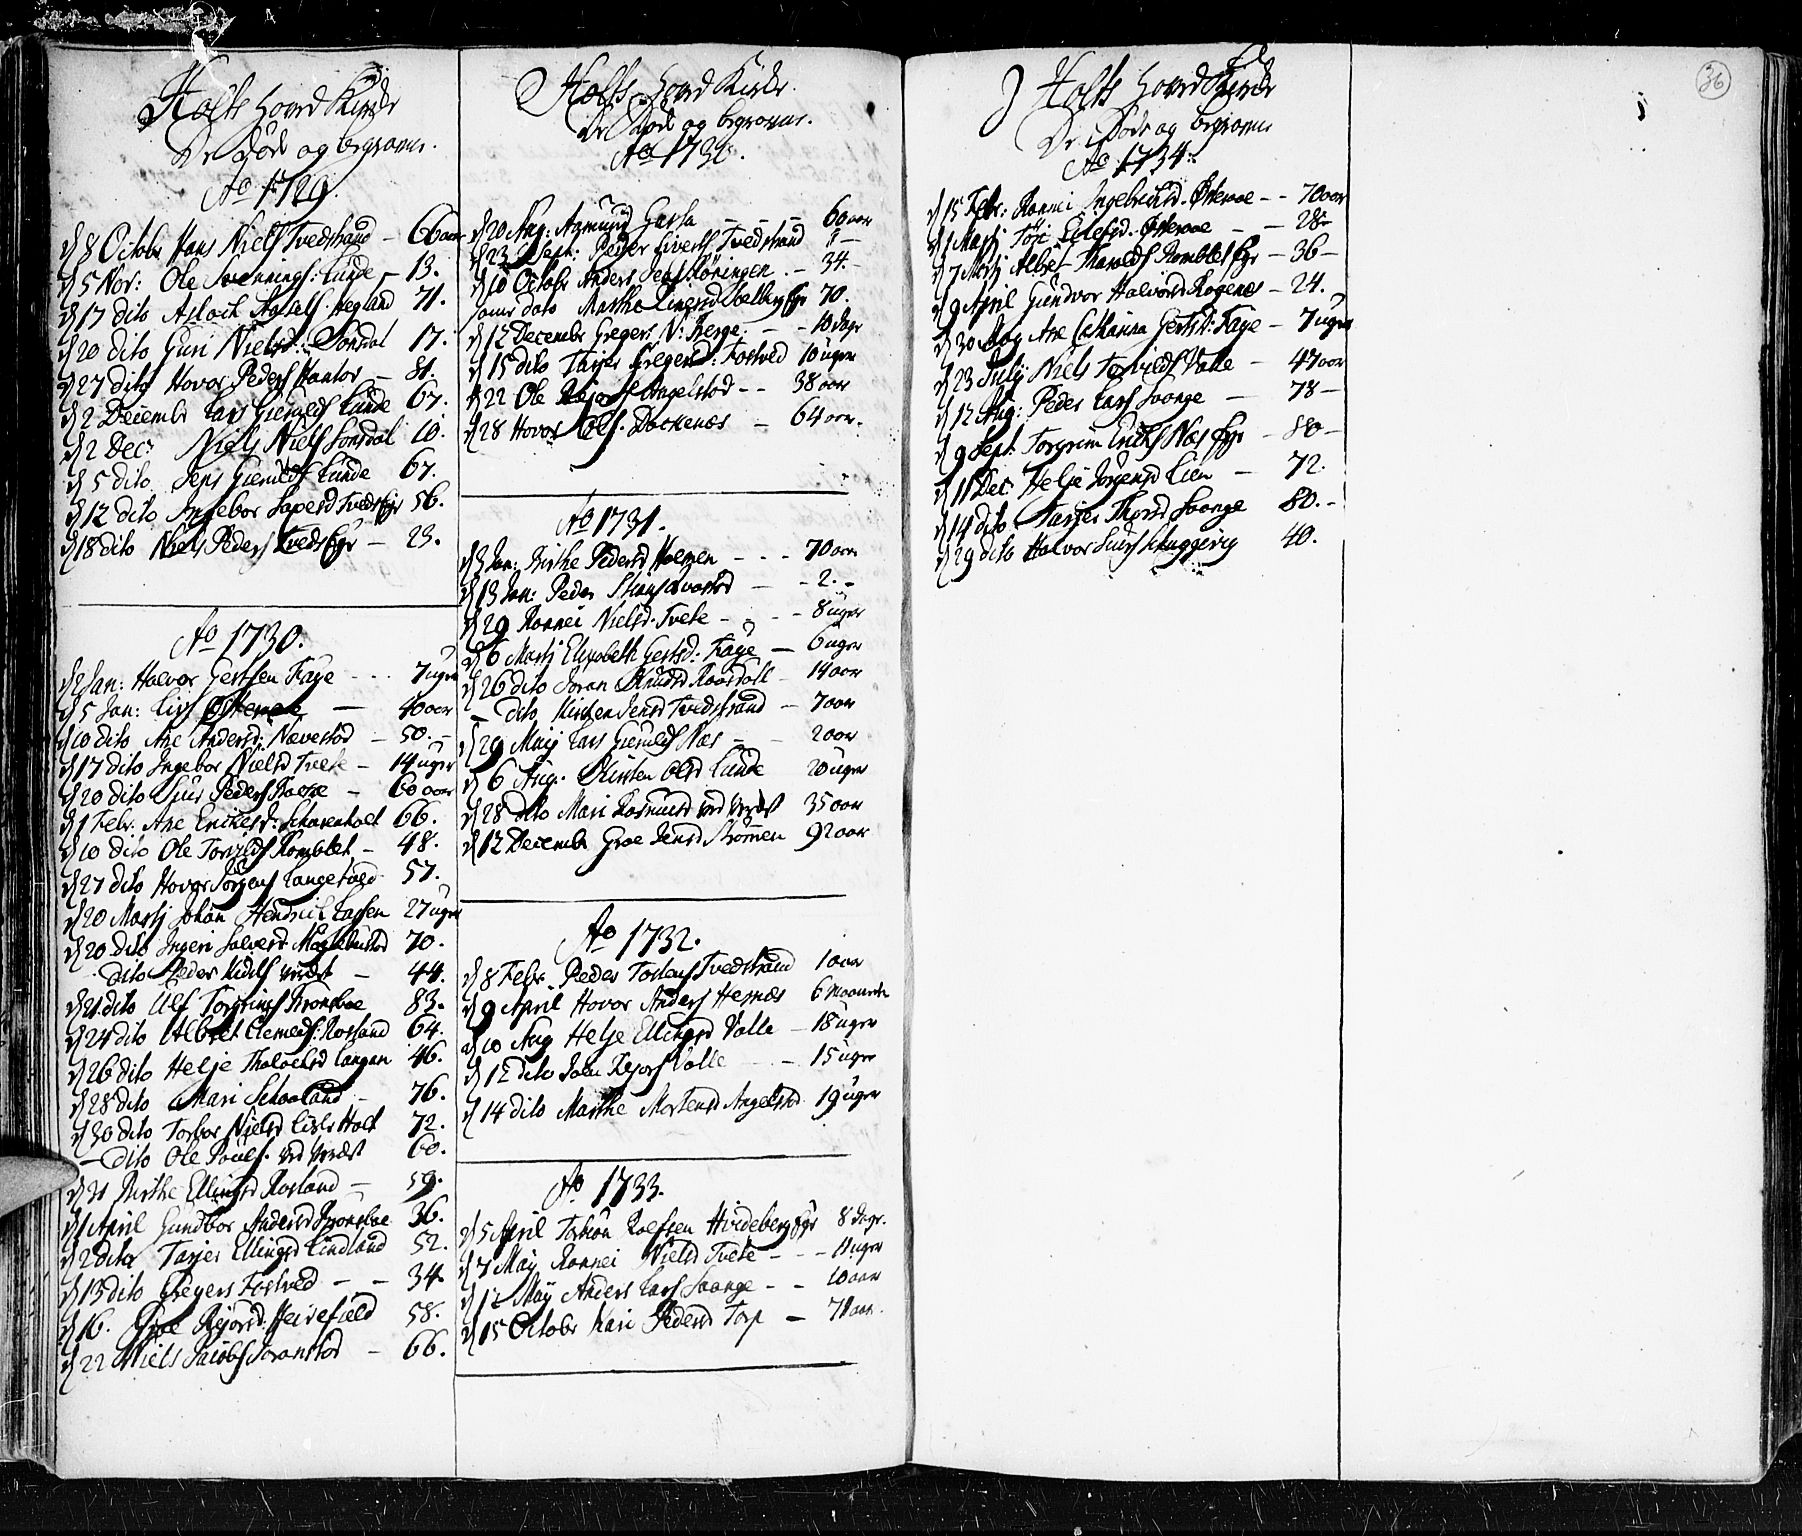 Holts Hoved Kirke
De Døde og begravne.
Ao 1729.
d 8 Octobr Hans Niels Tvedstrand - 66 aar
d 5 Nov: Ole Svennings: Lunde - 13.
d 17 dito Aslach Hegland 71.
d 20 dito Guri Nielsd: Sonsdal 17.
d 27 dito Hovor Peders Hantor - 81.
d 2 Decembr Lars Gieruldss Lunde 67.
d 2 Dec: Niels Niels Sonsdal 10.
d 5 dito Jens Gierulds Lunde 67.
d 12 dito Ingebor Tveds Eye 56.
d 18 dito Niels Peders Tveds Eye - 23.
Ao 1730.
d 2 Jan: Halvor Gertsen Faye - - - 7 uger
d 5 Jan: Liv Østeraae - 40 aar
d 10 dito Ane Andersd: Nævestod - 50. -
d 17 dito Ingebor Nielsd Tvete - 14 uger
d 20 dito Siur Peders - 60 aar
d 1 Febr. Ane Ericksd: 66.
d 10 dito Ole Torvilds Romblet - 48.
d 27 dito Hovor Jørgens Langetved 57.
d 20 Martj Johan Hendrick Lassen 27 uger
d 20 dito Ingeri 70.
- dito Peder - 44.
d 21 dito Ulf Torgrims Kronsboe 83.
d 24 dito Albret Clemeds: Rosland 64.
d 26 dito Helje Langan 46.
d 28 dito Mari Schaaland - 76.
d 30 dito Torbor Nielsd Lisle Holt 72.
- dito Ole Pouls. ved Værdst 60.
d 31 Birthe Ellingsd Rosland - 59.
d 1 April Gundbor Andersd Kronsboe 36.
d 2 dito Tarjer Ellingsd Lindland 52.
d 13 dito Gregers Fostved - - 34
d 16. Groe Rejersd. Heirefield 58.
d 22 Niels Jacobs - 66.
Holts Hoved Kirke.
De Døde og begravne.
Ao 1730.
d 20 Aug: Aamund Garta - - - 60 aar
d 23 Sept: Peder Siverts Tvedstrand
d 10 Octobr Anders - 34. -
samme dato Martha 70.
d 12 Decembr Gregers N: Berge. - - 10 dage
d 15 dito Tarjer Gregersd: Fostved 10 uger
d 22 Ole Angelstod - - 38 aar
d 28 Hovor Ols. Dockenæs - 64 aar.
Ao 1731.
d 3 Jan: Birthe Pedersd Holmen - - - 70 aar
d 13 Jan: Peder - - 2. -
d 29 Ronnei Nielsd. Tvete - - - 8 uger
d 6 Martj Elisabeth Gertsd: Faye - 6 uger
d 26 dito Joran Knudsd - 14 aar
- dito Kirsten Jensd Tvedstrand - 7 aar
d 29 Maij Lars Gierulds Næs - - 2 aar
d 6 Aug. Kirsten Olsd Lunde 20 uger
d 28 dito Mari Rasmusd ved Værdst 35 aar
d 12 Decembr Groe Jensd Strømmen 92 aar
Ao 1732.
d 8 Febr. Peder Tostens Tvedstrand 1 aar
d 9 April Hovor Anders Hejnæs 6 Maaneder
d 10 Aug Helje Ellingsd Valle - 18 uger
d 12 dito Joen Rejers Valle - - 15 uger
d 14 dito Marthe Mortensd Angelstod 19 uger
Ao 1733.
d 5 April Torkion Roefsen Hvideberg 8 dage.
d 7 Maij Ronnei Nielsd Tvete - - - 11 uger
d 12 Maij Anders Lars Saange - - 10 aar
d 15 Octobr Kari Pedersd Torp - 71 aar.
36
Holts Hoved Kirke
De Døde og begravne
Ao 1734.
d 15 Febr: Ronnei Ingebretsd. Østeraae - - 70 aar
d 1 Martj Østeraae - - 28 -
d 7 Martj Albret Romblet Eye - 36 -
d 9 April Gundvor Halvorsd Rogenæs - 24.
d 30 Maj Ane Catharina Gertsd: Faye - 7 uger
d 23 Julij Niels Torvilds Valle - 47 aar
d 12 Aug: Peder Lars Saange - 78 -
d 9 Sept: Torgrim Ericks Næs Eye - 80 -
d 11 Dec: Helje Jørgensd Lien - 72.
d 14 dito Tarjer Saange 80. -
d 29 dito Halvor 40.